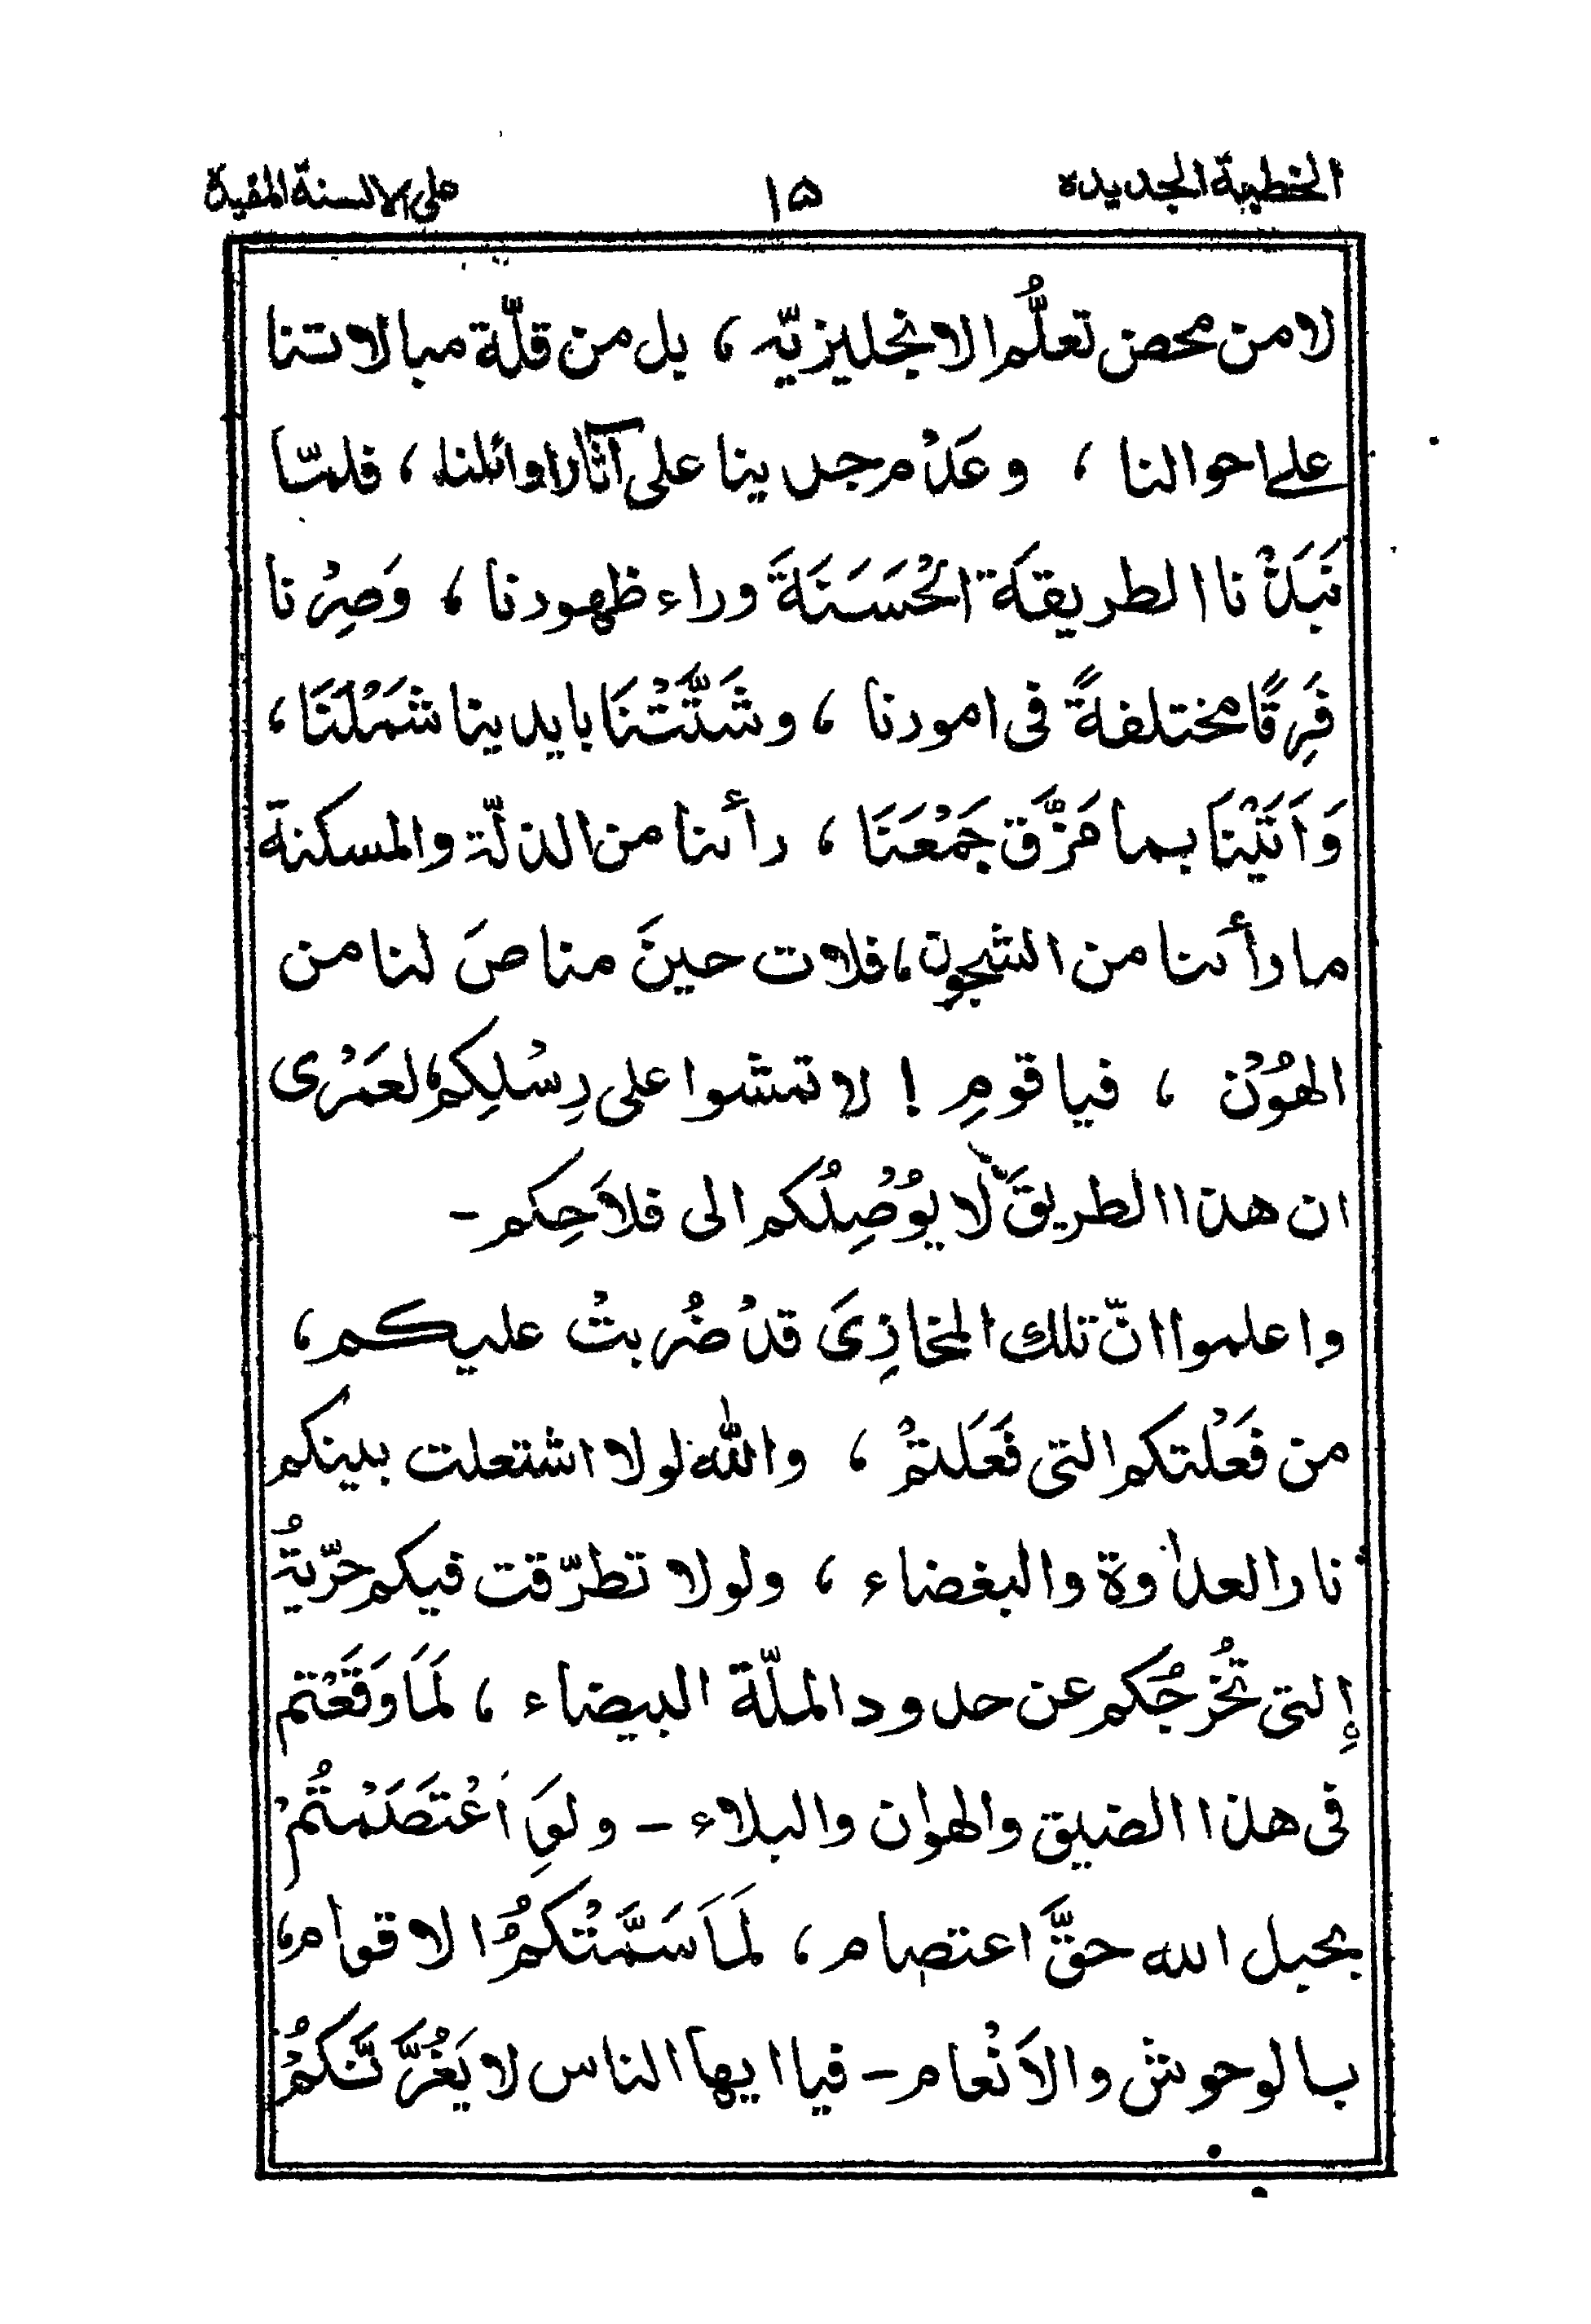 الخطبة الجديده ۱۵ على الالسنة المفيدة
لا من محض تعلُّم الانجليزيّه ، بل من قلّة مبالاتنا
علے احوالنا ، وعَدْم جدينا على آثار اوائلنا ، فلمّا
نَبَذْنا الطريقَة الحُسَنَةَ وراء ظهورنا ، وَصِرْنا
فَرِقًا مختلفةً فى امورنا ، وشَتَّتْنَا بايدينا شَمْلَنَا ،
وَاَتَيْنَا بما مَزَّق جَمْعَنَا ، رأىنا من الذلّة والمسكنة
ما رأىنا من الشجون ، فلات حينَ مناصَ لنا من
الهُوْن ، فيا قومِ ! لا تمشوا على رِسْلِكِم ، لعَمْرى
ان هذا الطريقَ لَا يُوْصِلُكم الى فلاَحِكم -
واعلموا انّ تلك المخازِىَ قدْ ضُربتْ عليكم ،
من فَعْلتكم التى فَعَلتمْ ، والله لولا اشتعلت بينكم
نار العداوة والبغضاء ، ولولا تطرّقت فيكم حرّيةُ
إلتى تُخْرجُكم عن حدود الملّة البيضاء ، لَمَا وَقَعْتم
فى هذا الضيق والهوان والبلاء - ولوَِ اَعْتَصَمْتُمْ
بحبل الله حقَّ اعتصام ، لَمَا سَمَّتْكمُ الاقوام ،
بالوحوش والاَنْعام - فيا ايها الناس لا يَغُرَّ نَّكمُْ